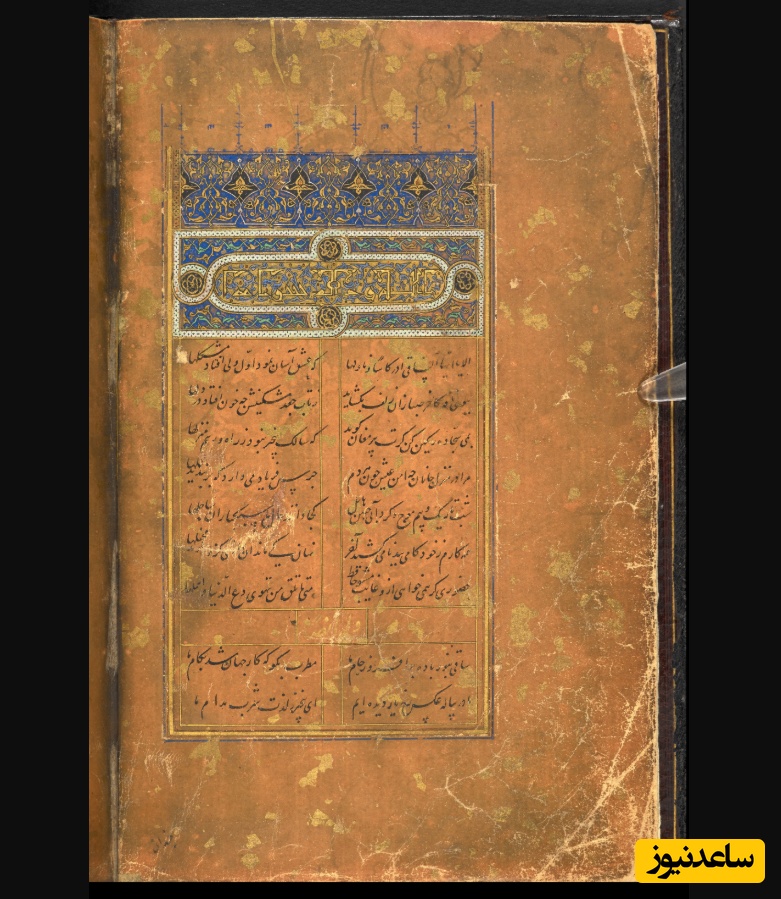 الا یا ایها الساقی ادر کاسا و ناولها که عشق آسان نمود اول ولی افتاد مشکلها
ببوی نافه کاخر صبا زان طره بگشاید ز تاب جعد مشکینش چه خون افتاد در دلها
بمی سجاده رنگین کن گرت پیر مغان گوید که سالک بیخبر نبود ز راه و رسم منزلها
مرا در منزل جانان چه امن عیش چون هر دم جرس فریاد می دارد که بربندید محملها
شب تاریک و بیم موج و گردابی چنین هایل کجا دانند حال ما سبکباران ساحلها
همه کارم ز خود کامی ببدنامی کشید آخر نهان کی ماند آن رازی کزو محفلها
حضوری گر همی خواهی ازو غایب مشو حافظ متی ما تلق من تهوی دع الدنیا و اهملها
ساقی بنور باده برافروز جام ما مطرب بگو که کار جهان شد بکام ما
ما در پیاله عکس رخ یار دیده ایم ای بیخبر ز لذت شرب مدام ما
ساعدنیوز